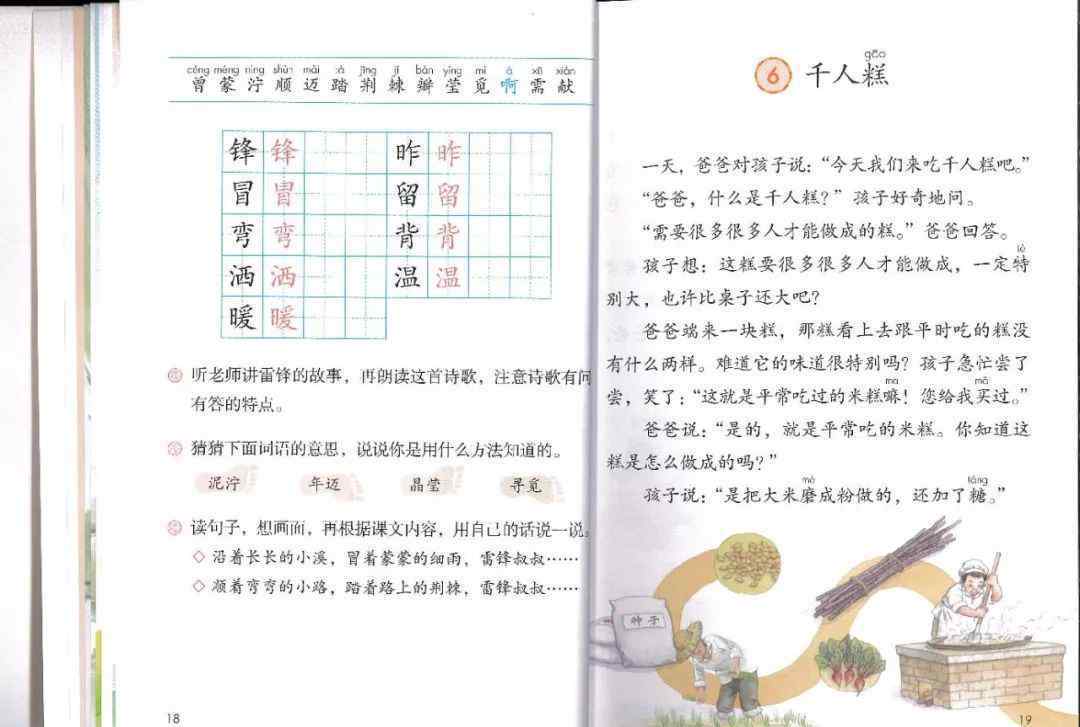 céng méng nìng shùn mài tà jīng jí bàn yíng mì a xū xiàn
曾 蒙 泞 顺 迈 踏 荆 棘 瓣 莹 觅 啊 需 献
锋 锋 昨 昨
冒 冒 留 留
弯 弯 背 背
洒 洒 温 温
暖 暖
听老师讲雷锋的故事，再朗读这首诗歌，注意诗歌有问
有答的特点。
猜猜下面词语的意思，说说你是用什么方法知道的。
泥泞 年迈 晶莹 寻觅
读句子，想画面，再根据课文内容，用自己的话说一说。
◇ 沿着长长的小溪，冒着蒙蒙的细雨，雷锋叔叔……
◇ 顺着弯弯的小路，踏着路上的荆棘，雷锋叔叔……
18
gāo
6 千人糕
一天，爸爸对孩子说：“今天我们来吃千人糕吧。”
“爸爸，什么是千人糕？”孩子好奇地问。
“需要很多很多人才能做成的糕。”爸爸回答。
tè
孩子想：这糕要很多很多人才能做成，一定特
别大，也许比桌子还大吧？
爸爸端来一块糕，那糕看上去跟平时吃的糕没
有什么两样。难道它的味道很特别吗？孩子急忙尝了
ma mǎi
尝，笑了：“这就是平常吃过的米糕嘛！您给我买过。”
爸爸说：“是的，就是平常吃的米糕。你知道这
糕是怎么做成的吗？”
mó táng
孩子说：“是把大米磨成粉做的，还加了糖。”
种子
19